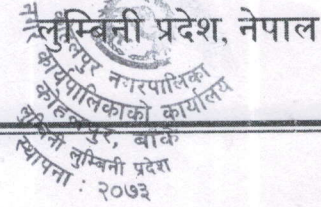 लुम्बिनी प्रदेश, नेपाल
नगरपालिका
कार्यपालिकाको कार्यालय
कोहलपुर, बाँके
लुम्बिनी प्रदेश
स्थापना : २०७३